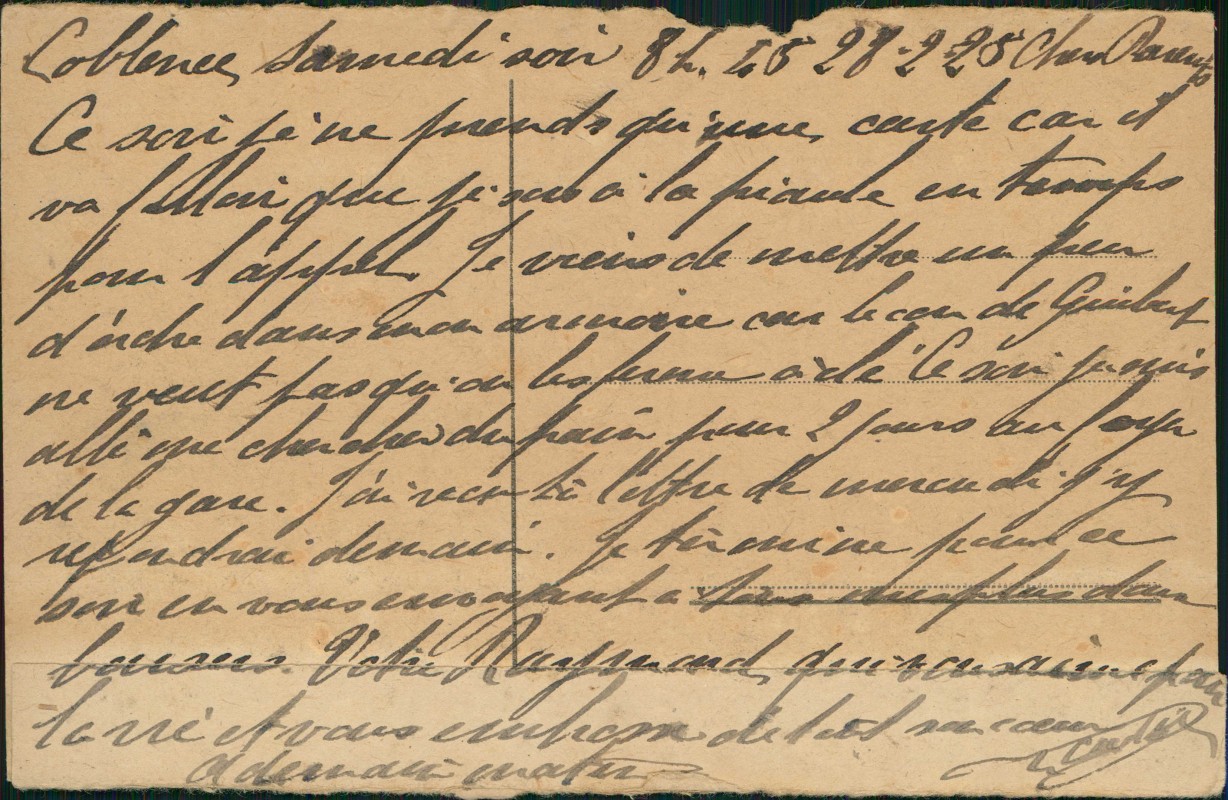 Coblence, Samedi soir 8 h. 15 28-2-25 Chers Parents
Ce soir je ne prends qu'une carte car il
va falloir que je sois à la piaule en temps
pour l'appel. Je viens de mettre un peu
d'ordre dans mon armoire car le con de Guibert
ne veut pas qu'on les ferme à clé. Ce soir je suis
allé me chercher du pain pour 2 jours au foyer
de la gare. J'ai reçu ta lettre de mercredi j'y
répondrai demain. Je termine pour ce
soir en vous envoyant à tous mes plus doux
baisers. Votre Raymond qui vous aime pour
la vie et vous embrasse de tout son cœur
A demain matin